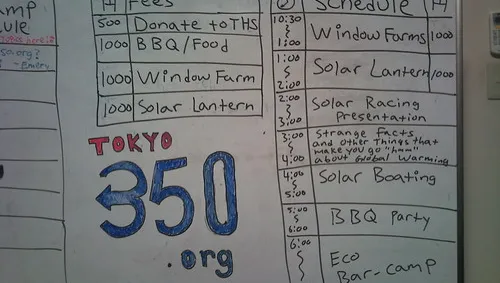 amp
ule
Topics here!!
~Emery
H Fees
500 Donate to THS
1000 BBQ/Food
1000 Window Farm
1000 Solar Lantern
TOKYO
350
.org
Schedule H
10:30 ~ 1:00 Window Farms 1000
1:00 ~ 2:00 Solar Lantern 1000
2:00 ~ 3:00 Solar Racing
Presentation
3:00 ~ 4:00 Strange Facts
and Other Things that
make you go "hmm"
about Global Warming
4:00 ~ 5:00 Solar Boating
5:00 ~ 6:00 BBQ Party
6:00 Eco
Bar-camp